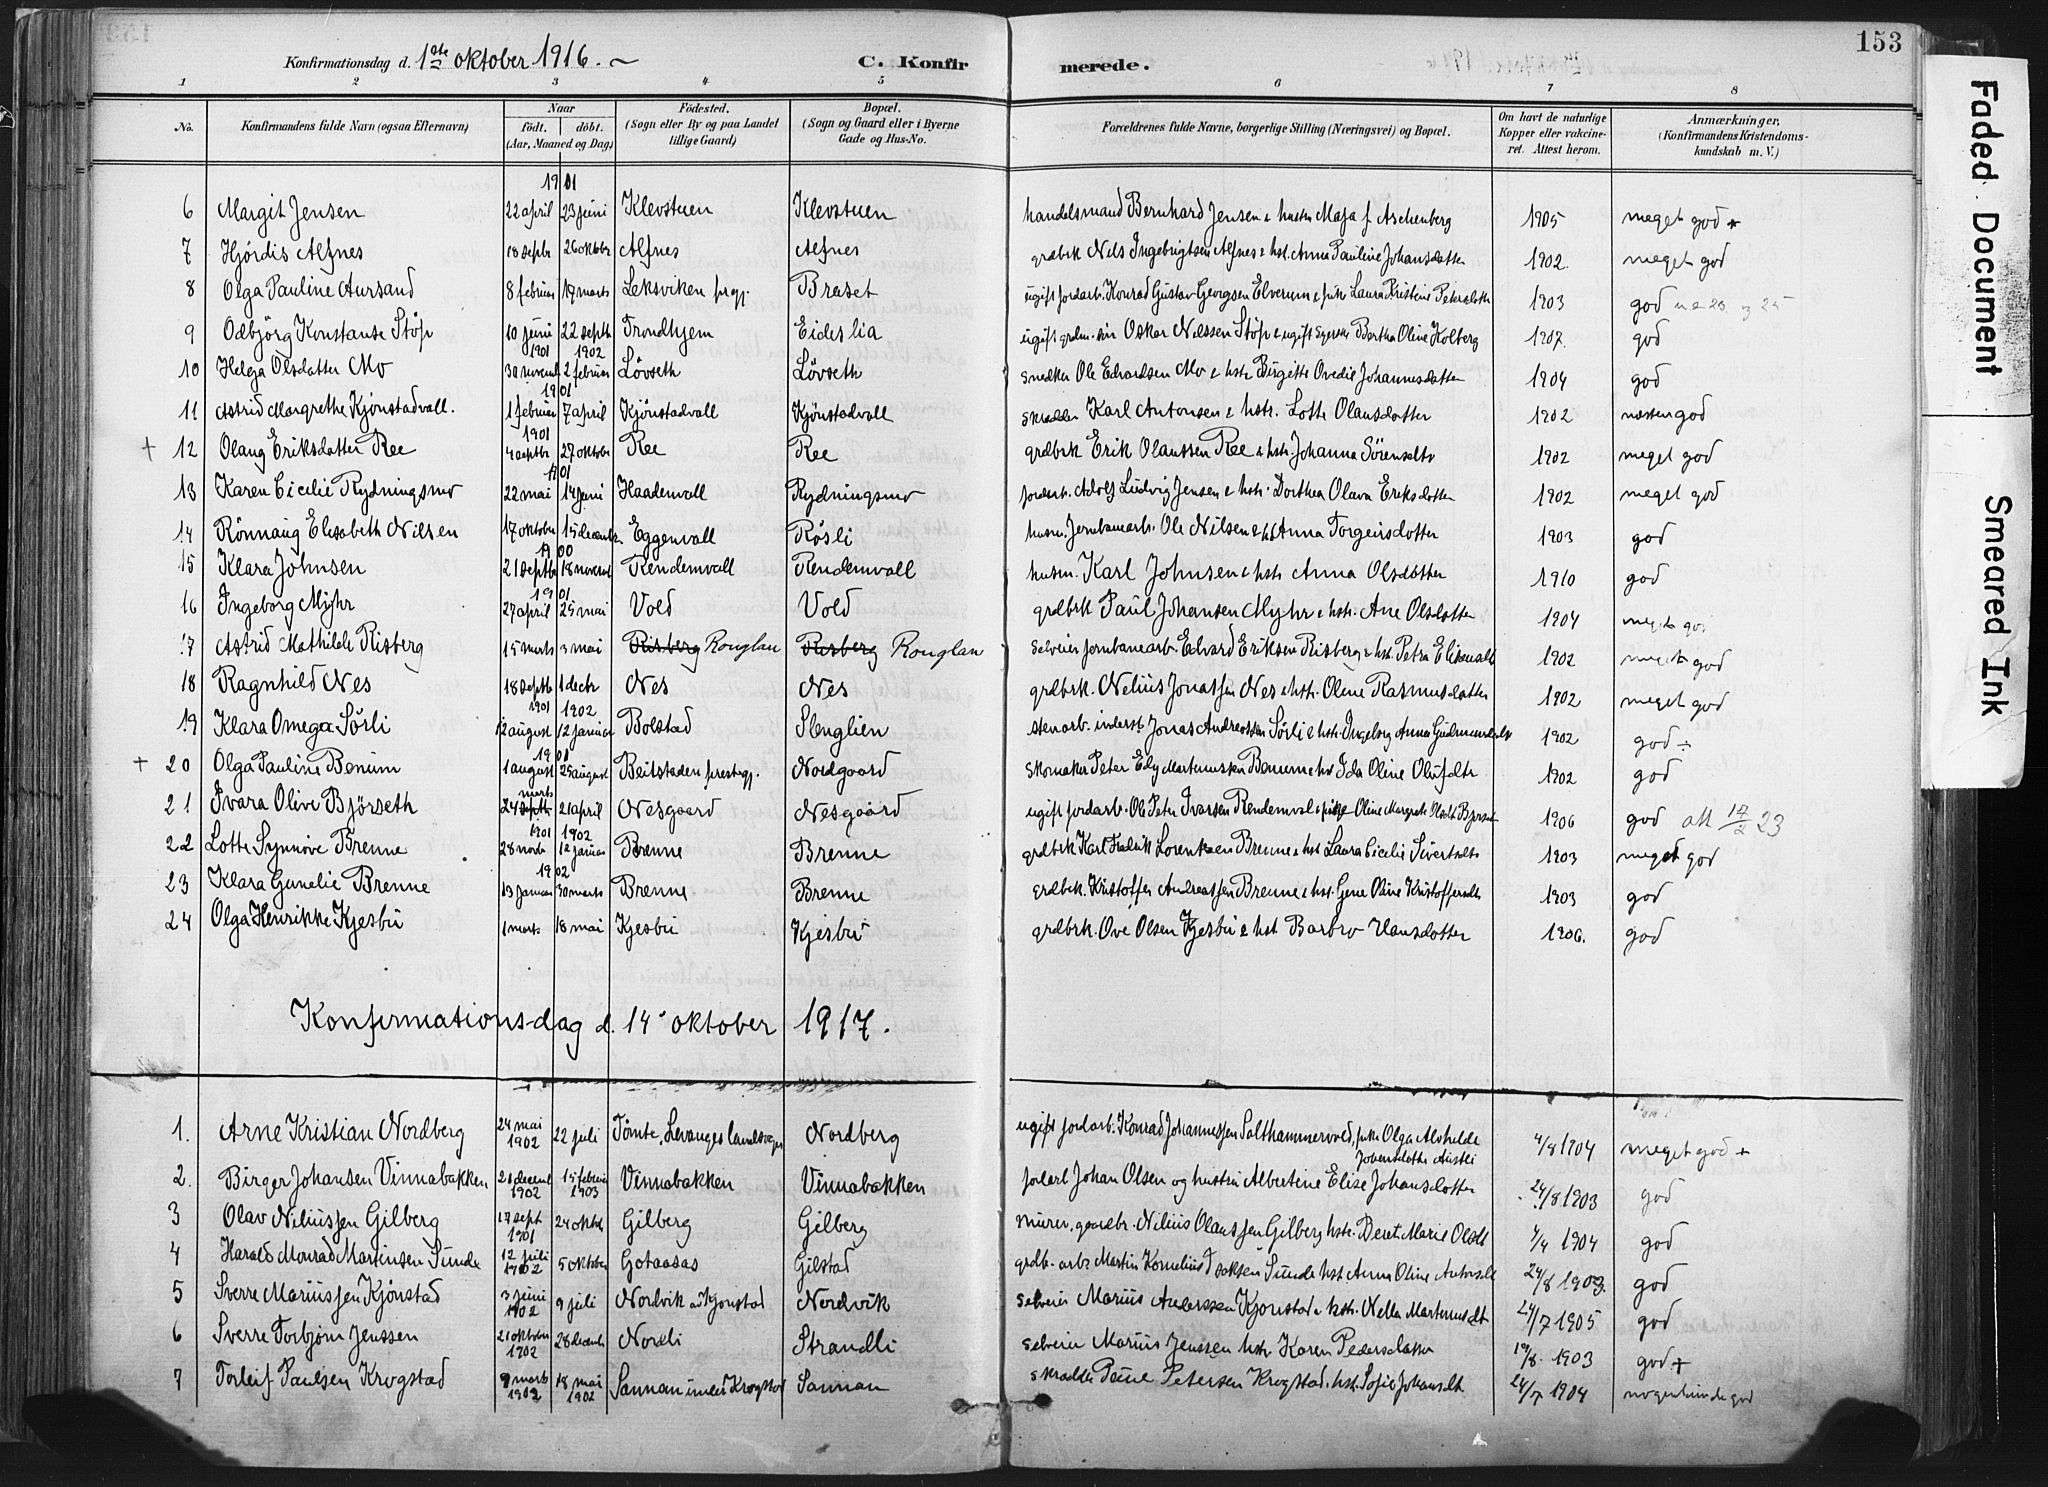 153
Konfirmationsdag d. 1ste oktober 1916.
C. Konfirmerede.
1 2 3 4 5 6 7 8
No. Konfirmandens fulde Navn (ogsaa Efternavn) Naar födt. döbt. (Aar, Maaned og Dag) Födested. (Sogn eller By og paa Landet tillige Gaard) Bopæl. (Sogn og Gaard eller i Byerne Gade og Hus-No. Forældrenes fulde Navne, borgerlige Stilling (Næringsvei) og Bopæl. Om havt de naturlige Kopper eller vakcineret. Attest herom. Anmærkninger, (Konfirmandens Kristendomskundskab m. V.)
1901
6 Margit Jensen 22 april 23 juni Klevstuen Klevstuen handelsmand Bernhard Jensen & hustru Maja f. Aschenberg 1905 meget god +
7 Hjördis Alfnes 18 septbr 26 oktobr Alfnes Alfnes grdbrk Nils Ingebrigtsen Alfnes & hst. Anna Pauline Johansdatter 1902. meget god
8 Olga Pauline Aursand 8 februar 17 marts Leksviken prgj. Braset ugift jordarb. Konrad Gustav Georgsen Elverum & pike Laura Kristine Petersdatter 1903 god
9 Odbjörg Konstanse Stöp 10 juni 22 septb Trondhjem Eideslia ugift Oskar Nilssen Stöp & ugift Bertha Oline Kolberg 1907. god
1901 1902
10 Helga Olsdatter Mo 30 novemb 2 februar Lövseth Lövseth snedker Ole Edvardsen Mo & hstr Birgitte Ovedie Johannesdatter 1904 god
1901
11 Astrid Margrethe Kjönstadvall. 1 februar 7 april Kjönstadvall Kjönstadvall skrædder Karl Antonsen & hstr. Lotte Olausdatter 1902 næsten god
1901
+ 12 Olaug Eriksdatter Ree 4 septbr 27 oktobr Ree Ree grdbrk Erik Olaussen Ree & hstr. Johanna Sörensdtr 1902 meget god
1901
13 Karen Cicilie Rydningsmo 22 mai 14 juni Haadenvall Rydningsmo jordarb. Adolf Ludvig Jensen & hstr. Dorthea Olava Eriksdatter 1902 meget god
14 Rönnaug Elisabeth Nilsen 17 oktober 15 decembr. Eggenvall Rösli husm. Jernbanearb. Ole Nilsen & h. Anna Torgeirsdatter 1903 god
1900
15 Klara Johnsen 21 septbr 18 novemb Rendemvall Rendemvall husm. Karl Johnsen & hstr Anna Olsdatter 1910 god
1901
16 Ingeborg Myhr 27 april 25 mai Vold Vold grdbrk Paul Johansen Myhr & hstr. Ane Olsdatter 1904 meget god
17 Astrid Mathilde Risberg 15 marts 3 mai Risberg Rouglan Risberg Rouglan selveier jernbanearb. Edvard Eriksen Risberg & hst. Petra 1902 meget god
18 Ragnhild Nes 18 septb 1 decbr Nes Nes grdbrk. Nelius Jonassen Nes & hstr. Oline Rasmusdatter 1902 meget god
1901 1902
19 Klara Omega Sörli 12 august 12 januar Bolstad Slenglien stenarb. inderst Jonas Andreassen Sörli & hstr. Ingeborg Anna 1902 god ÷
1901
+ 20 Olga Pauline Benum 1 august 25 august Beitstaden prestegj. Nordgaard Skomaker Peter Martinussen Benum & h Ida Oline Olufsdtr 1902 god
marts
21 Ivara Olive Björseth 24 septb 21 april Nesgaard Nesgaard ugift jordarb. Ole Peter Ivarsen Rendemval & pike Oline Margrete 1906 god att 17/2 23
1901 1902
22 Lotte Synnöve Brenne 28 novb 12 januar Brenne Brenne grdbrk Karl Fredrik Lorentsen Brenne & hst Laura Cicilie Sivertsdtr 1903 meget god
1902
23 Klara Gunelie Brenne 13 januar 30 marts Brenne Brenne grdbrk. Kristoffer Andreassen Brenne & hst. Gene Oline Kristoffersdtr 1903 god
24 Olga Henrikke Kjesbu 1 marts 18 mai Kjesbu Kjesbu grdbrk. Ove Olsen Kjesbu & hst Barbro Hansdatter 1906. god
Konfirmationsdag d. 14. oktober 1917.
1. Arne Kristian Nordberg 24 mai 1902 22 juli Tömte, Levanger landsogn Nordberg ugift jordarb. Konrad Johannessen Salthammervold, pike Olga Alvhilde 4/8 1904 meget god +
2. Birger Johansen Vinnabakken 21 decemb 1902 15 februar 1903 Vinnabakken Vinnabakken Johan Olsen og hustru Albertine Elise Johansdatter 24/8 1903 god
3 Olav Niliussen Gilberg 17 sept 1901 24 oktob Gilberg Gilberg Murer, gaardbr. Nilius Olaussen Gilberg hstr. Beret Marie Olsdt 4/4 1904 god
4 Harald Monrad Martinsen Sunde 12 juli 1902 5 oktober Gotaasas Gilstad grdb. arb Martin Kornelius Isaksen Sunde hst Anna Oline Antonsdt 24/8 1903. god
5 Sverre Mariussen Kjönstad 3 juni 1902 9 juli Nordvik ad Kjonstad Nordvik Selveier Marius Anderssen Kjönstad & hstr. Nella Martinusdt 24/7 1905 god
6 Sverre Torbjörn Jenssen 21 oktober 1902 28 decemb Nordli Strandli selveier Marius Jenssen hstr Karen Pedersdatter 19/8. 1903 god +
7 Torleif Paulsen Krogstad 9 marts 1902 18 mai 1902 Sannan under Krogstad Sannan skrædder Petersen Krogstad. hst. Sofie Johansdt. 24/7 1904 nogenlunde god
Faded Document
Smeared Ink